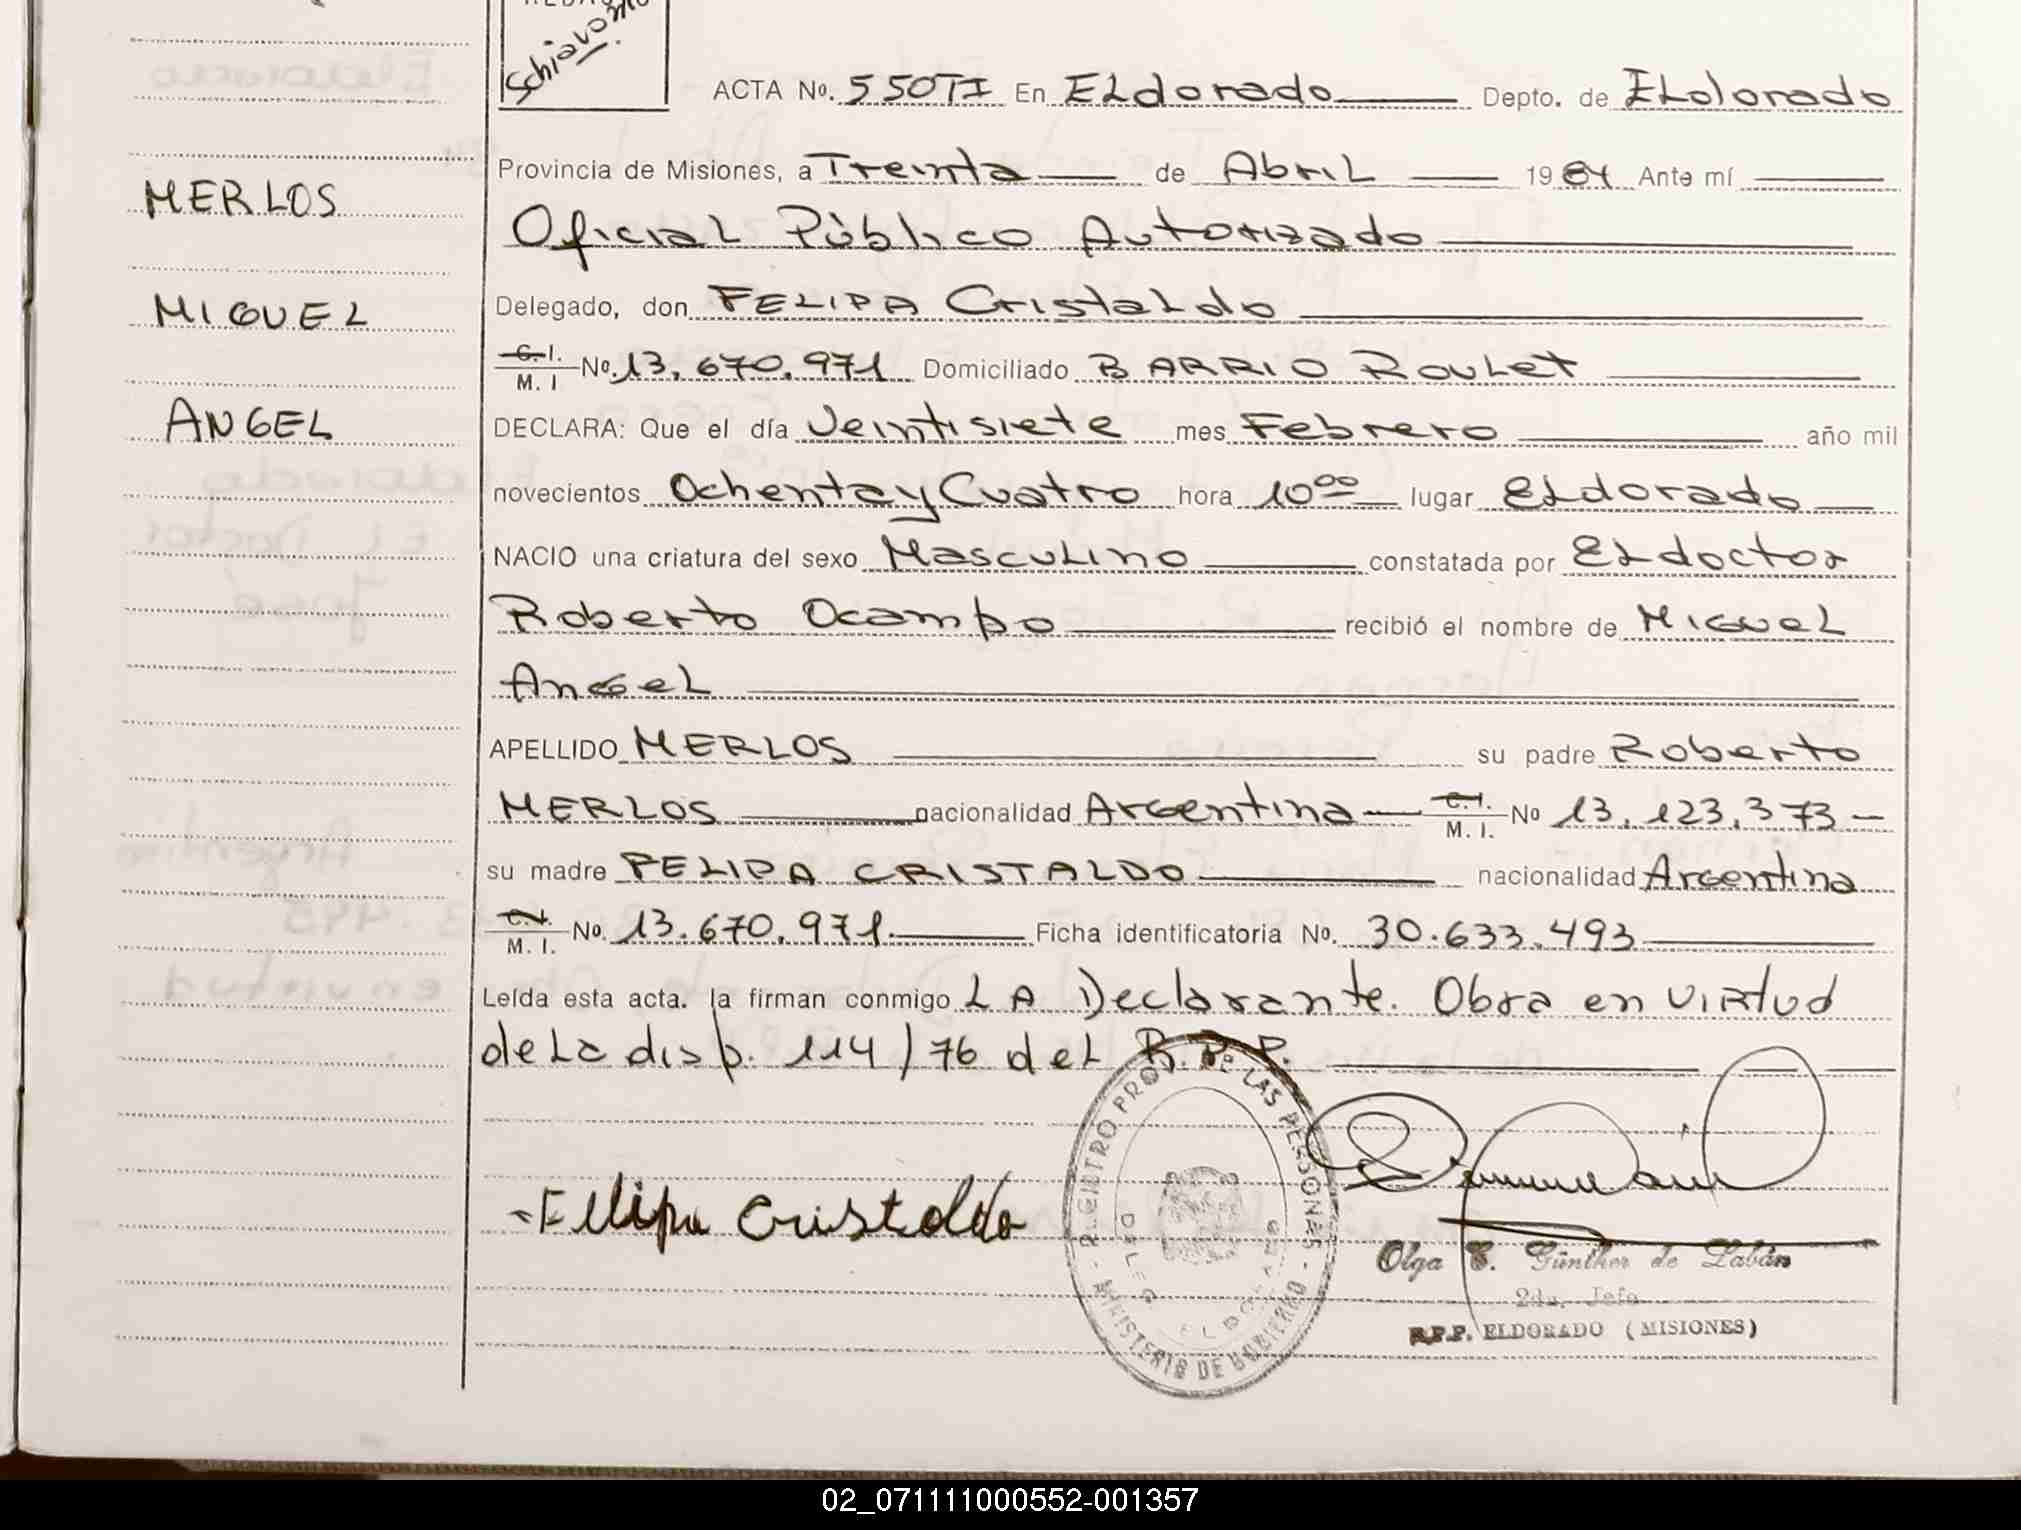 Schiavoni.
ACTA No. 550TI En ELdorado Depto. de ELdorado
Provincia de Misiones, a Treinta de Abril 1984 Ante mí
Oficial Público Autorizado
Delegado, don FELIPA Cristaldo
C. I. / M. I No. 13.670.971 Domiciliado BARRIO ROULET
DECLARA: Que el día Veintisiete mes Febrero año mil
novecientos Ochenta y Cuatro hora 10 00 lugar ELdorado
NACIO una criatura del sexo Masculino constatada por EL doctor
Roberto Ocampo recibió el nombre de Miguel
Angel
APELLIDO MERLOS su padre Roberto
MERLOS nacionalidad Argentina C. I. / M. I. No 13.123.373-
su madre FELIPA CRISTALDO nacionalidad Argentina
C. I. / M. I. No. 13.670.971. Ficha identificatoria No. 30.633.493
Leída esta acta. la firman conmigo LA Declarante. Obra en virtud
de La disp. 114/76 del R. P. P.
MERLOS
MIGUEL
ANGEL
Fellipa Cristaldo
REGISTRO PROV. DE LAS PERSONAS
MINISTERIO DE GOBIERNO
DELEG. ELDORADO
Olga C. Günther de Labán
2da. Jefe
R.P.P. ELDORADO (MISIONES)
02_071111000552-001357